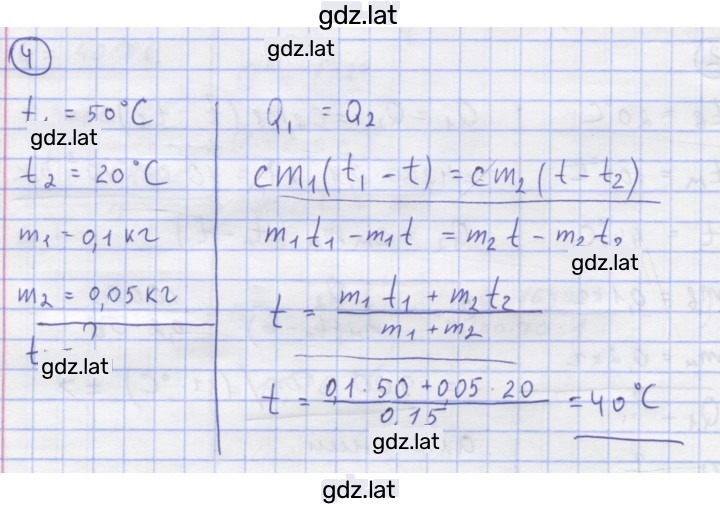 gdz.lat
4
gdz.lat
t₁ = 50°C
gdz.lat
t₂ = 20°C
m₁ = 0,1 кг
m₂ = 0,05 кг
t - ?
gdz.lat
Q₁ = Q₂
cm₁(t₁ - t) = cm₂(t - t₂)
m₁t₁ - m₁t = m₂t - m₂t₂
gdz.lat
t = (m₁t₁ + m₂t₂) / (m₁ + m₂)
t = (0,1 · 50 + 0,05 · 20) / 0,15 = 40°C
gdz.lat
gdz.lat